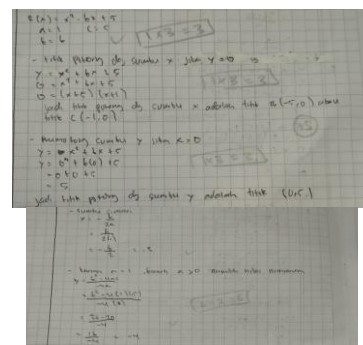 f(x) = x² + 6x + 5
a = 1 c = 5
b = 6
1 x 3 = 3
- titik potong dg sumbu x jika y = 0
y = x² + 6x + 5
0 = x² + 6x + 5
0 = (x+5) (x+1)
jadi titik potong dg sumbu x adalah titik B(-5,0) atau
titik C(-1,0)
- memotong sumbu y jika x = 0
y = x² + 6x + 5
y = 0² + 6(0) + 5
= 0 + 0 + 5
= 5
jadi titik potong dg sumbu y adalah titik (0,5)
- Sumbu simetri
x = - b/2a
= - 6/2(1)
= - 6/2 = -3
- karena a = 1, a > 0 memiliki nilai minimum
= 36-20/-4
= 16/-4 = -4